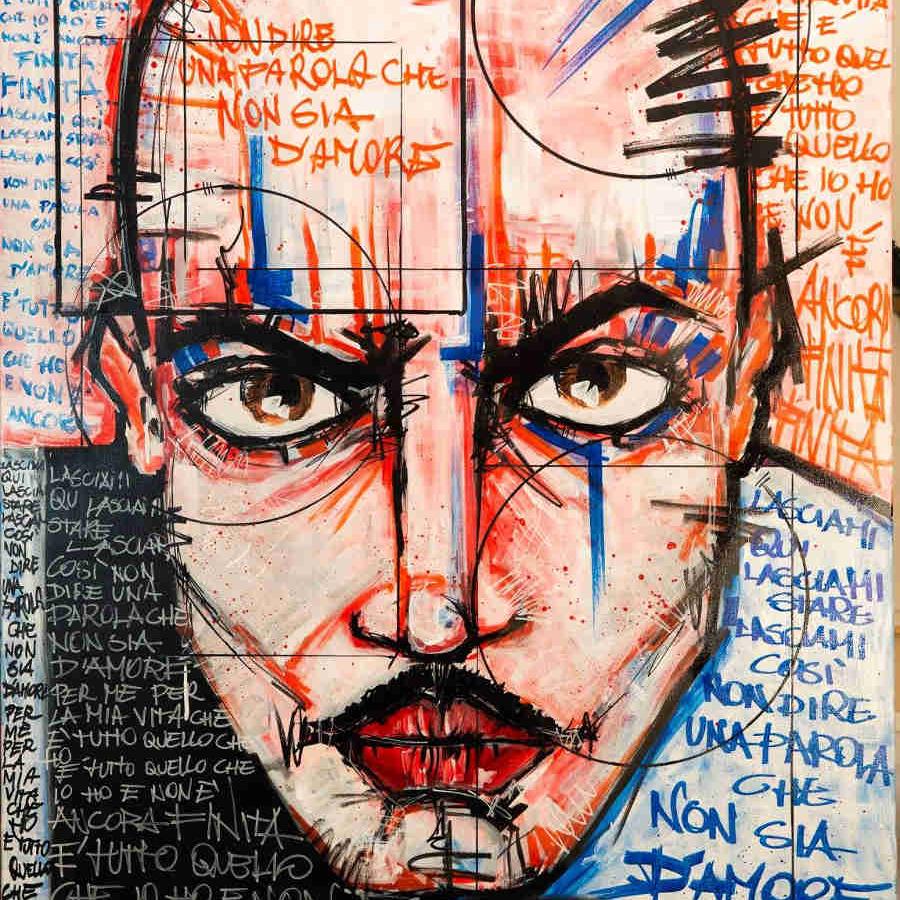 QUELLO
CHE IO HO E
NON È ANCORA
FINITA
FINITA
LASCIAMI COSÌ
LASCIAMI STARE
LASCIAMI COSÌ
NON DIRE
UNA PAROLA
CHE
NON SIA
D'AMORE
E' TUTTO
QUELLO
CHE HO
E NON È
ANCORA
NON DIRE
UNA PAROLA CHE
NON SIA
D'AMORE
CHE E'
TUTTO QUEL
TUTTO
QUELLO
CHE IO HO
E NON
È
ANCORA
FINITA
FINITA
QUI
LASCIAMI
STARE
COSÌ
NON
DIRE
UNA
PAROLA
CHE
NON
SIA
D'AMORE
PER
ME
PER
LA
MIA
VITA
CHE
E' TUTTO
QUELLO
CHE
LASCIAMI
QU LASCIAMI
STARE
LASCIAMI
COSÌ NON
DIRE UNA
PAROLA CHE
NON SIA
D'AMORE
PER ME PER
LA MIA VITA CHE
E' TUTTO QUELLO CHE
E' TUTTO QUELLO CHE
IO HO E NON E'
ANCORA FINITA
E' TUTTO QUELLO
CHE IO HO E NON
LASCIAMI
QUI
LASCIAMI
STARE
LASCIAMI
COSÌ
NON DIRE
UNA PAROLA
CHE
NON SIA
D'AMORE